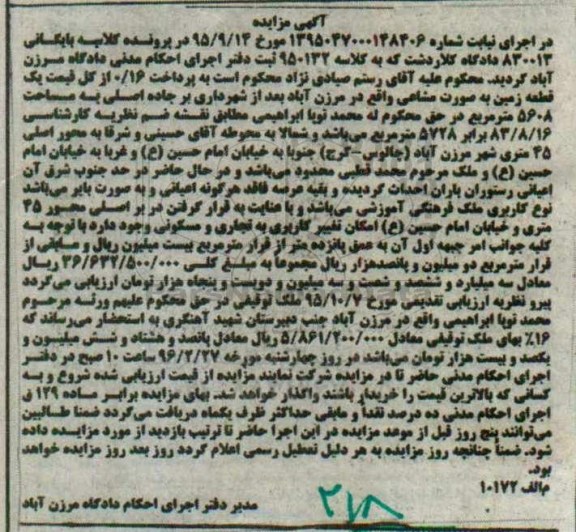 آگهی مزایده
در اجرای نیابت شماره ۱۳۹۵۰۴۷۰۰۰۱۴۸۴۰۶ مورخ ۹۵/۹/۱۴ در پرونده کلاسه بایگانی
۸۳۰۰۱۳ دادگاه کلاردشت که به کلاسه ۹۵۰۱۳۲ ثبت دفتر اجرای احکام مدنی دادگاه مرزن
آباد گردید. محکوم علیه آقای رستم صیادی نژاد محکوم است به پرداخت ۰/۱۶ از کل قیمت یک
قطعه زمین به صورت مشاعی واقع در مرزن آباد بعد از شهرداری بر جاده اصلی به مساحت
۵۶۰۸ مترمربع در حق محکوم له محمد توپا ابراهیمی مطابق نقشه ضم نظریه کارشناسی
۸۳/۸/۱۶ برابر ۵۷۲۸ مترمربع می‌باشد و شمالا به محوطه آقای حسینی و شرقا به محور اصلی
۴۵ متری شهر مرزن آباد (چالوس-کرج) جنوبا به خیابان امام حسین (ع) و غربا به خیابان امام
حسین (ع) و ملک مرحوم محمد قطبی محدود می‌باشد و در حال حاضر در حد جنوب شرق آن
اعیانی رستوران باران احداث گردیده و بقیه عرصه فاقد هرگونه اعیانی و به صورت بایر می‌باشد
نوع کاربری ملک فرهنگی آموزشی می‌باشد و با عنایت به قرار گرفتن در بر اصلی محور ۴۵
متری و خیابان امام حسین (ع) امکان تغییر کاربری به تجاری و مسکونی وجود دارد با توجه به
کلیه جوانب امر جبهه اول آن به عمق پانزده متر از قرار مترمربع بیست میلیون ریال و مابقی از
قرار مترمربع دو میلیون و پانصدهزار ریال مجموعاً به مبلغ کلی ۳۶/۶۳۲/۵۰۰/۰۰۰ ریال
معادل سه میلیارد و ششصد و شصت و سه میلیون و دویست و پنجاه هزار تومان ارزیابی می‌گردد
پیرو نظریه ارزیابی تقدیمی مورخ ۹۵/۱۰/۷ ملک توقیفی در حق محکوم علیهم ورثه مرحوم
محمد توپا ابراهیمی واقع در مرزن آباد جنب دبیرستان شهید آهنگری به استحضار می‌رساند که
۱۶٪ بهای ملک توقیفی معادل ۵/۸۶۱/۲۰۰/۰۰۰ ریال معادل پانصد و هشتاد و شش میلیون و
یکصد و بیست هزار تومان می‌باشد در روز چهارشنبه مورخه ۹۶/۲/۲۷ ساعت ۱۰ صبح در دفتر
اجرای احکام مدنی حاضر تا در مزایده شرکت نمایند مزایده از قیمت ارزیابی شده شروع و به
کسانی که بالاترین قیمت را خریدار باشند واگذار خواهد شد. بهای مزایده برابر ماده ۱۲۹ ق
اجرای احکام مدنی ده درصد نقداً و مابقی حداکثر ظرف یکماه دریافت می‌گردد ضمنا طالبین
می‌توانند پنج روز قبل از موعد مزایده در این اجرا حاضر تا ترتیب بازدید از مورد مزایده داده
شود. ضمناً چنانچه روز مزایده به هر دلیل تعطیل رسمی اعلام گردد روز بعد روز مزایده خواهد
بود.
م‌الف ۱۰۱۷۲
مدیر دفتر اجرای احکام دادگاه مرزن آباد
۲۱۸